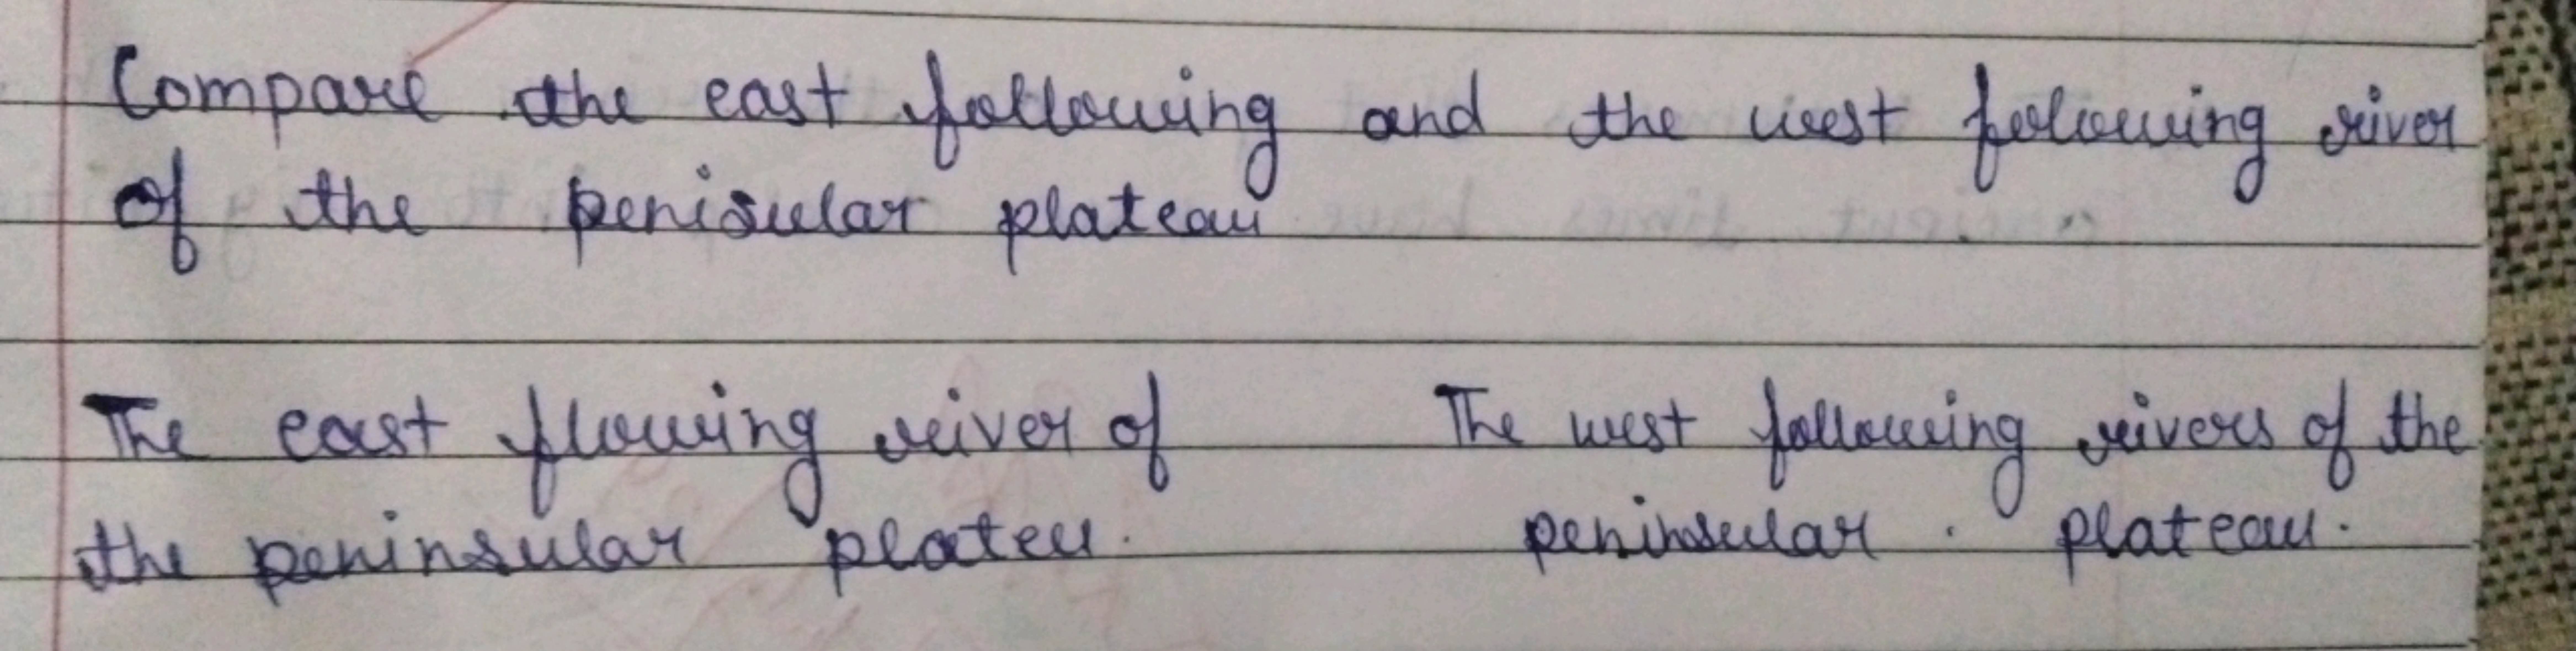 Compare the east following and the west following river
of the penisular plateau
The east flowing river of The west following rivers of the
the peninsular plateu. peninsular . plateau.